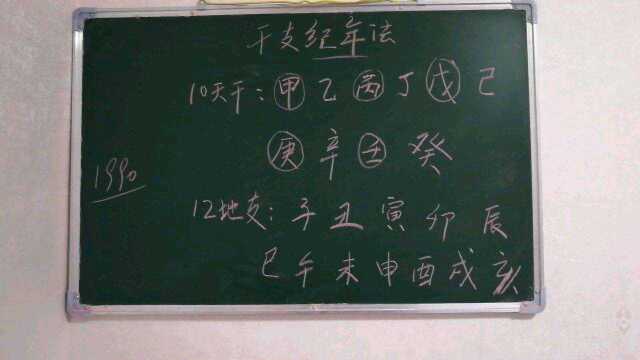 干支纪年法
10天干：甲乙丙丁戊己
庚辛壬癸
1990
12地支：子丑寅卯辰
巳午未申酉戌亥